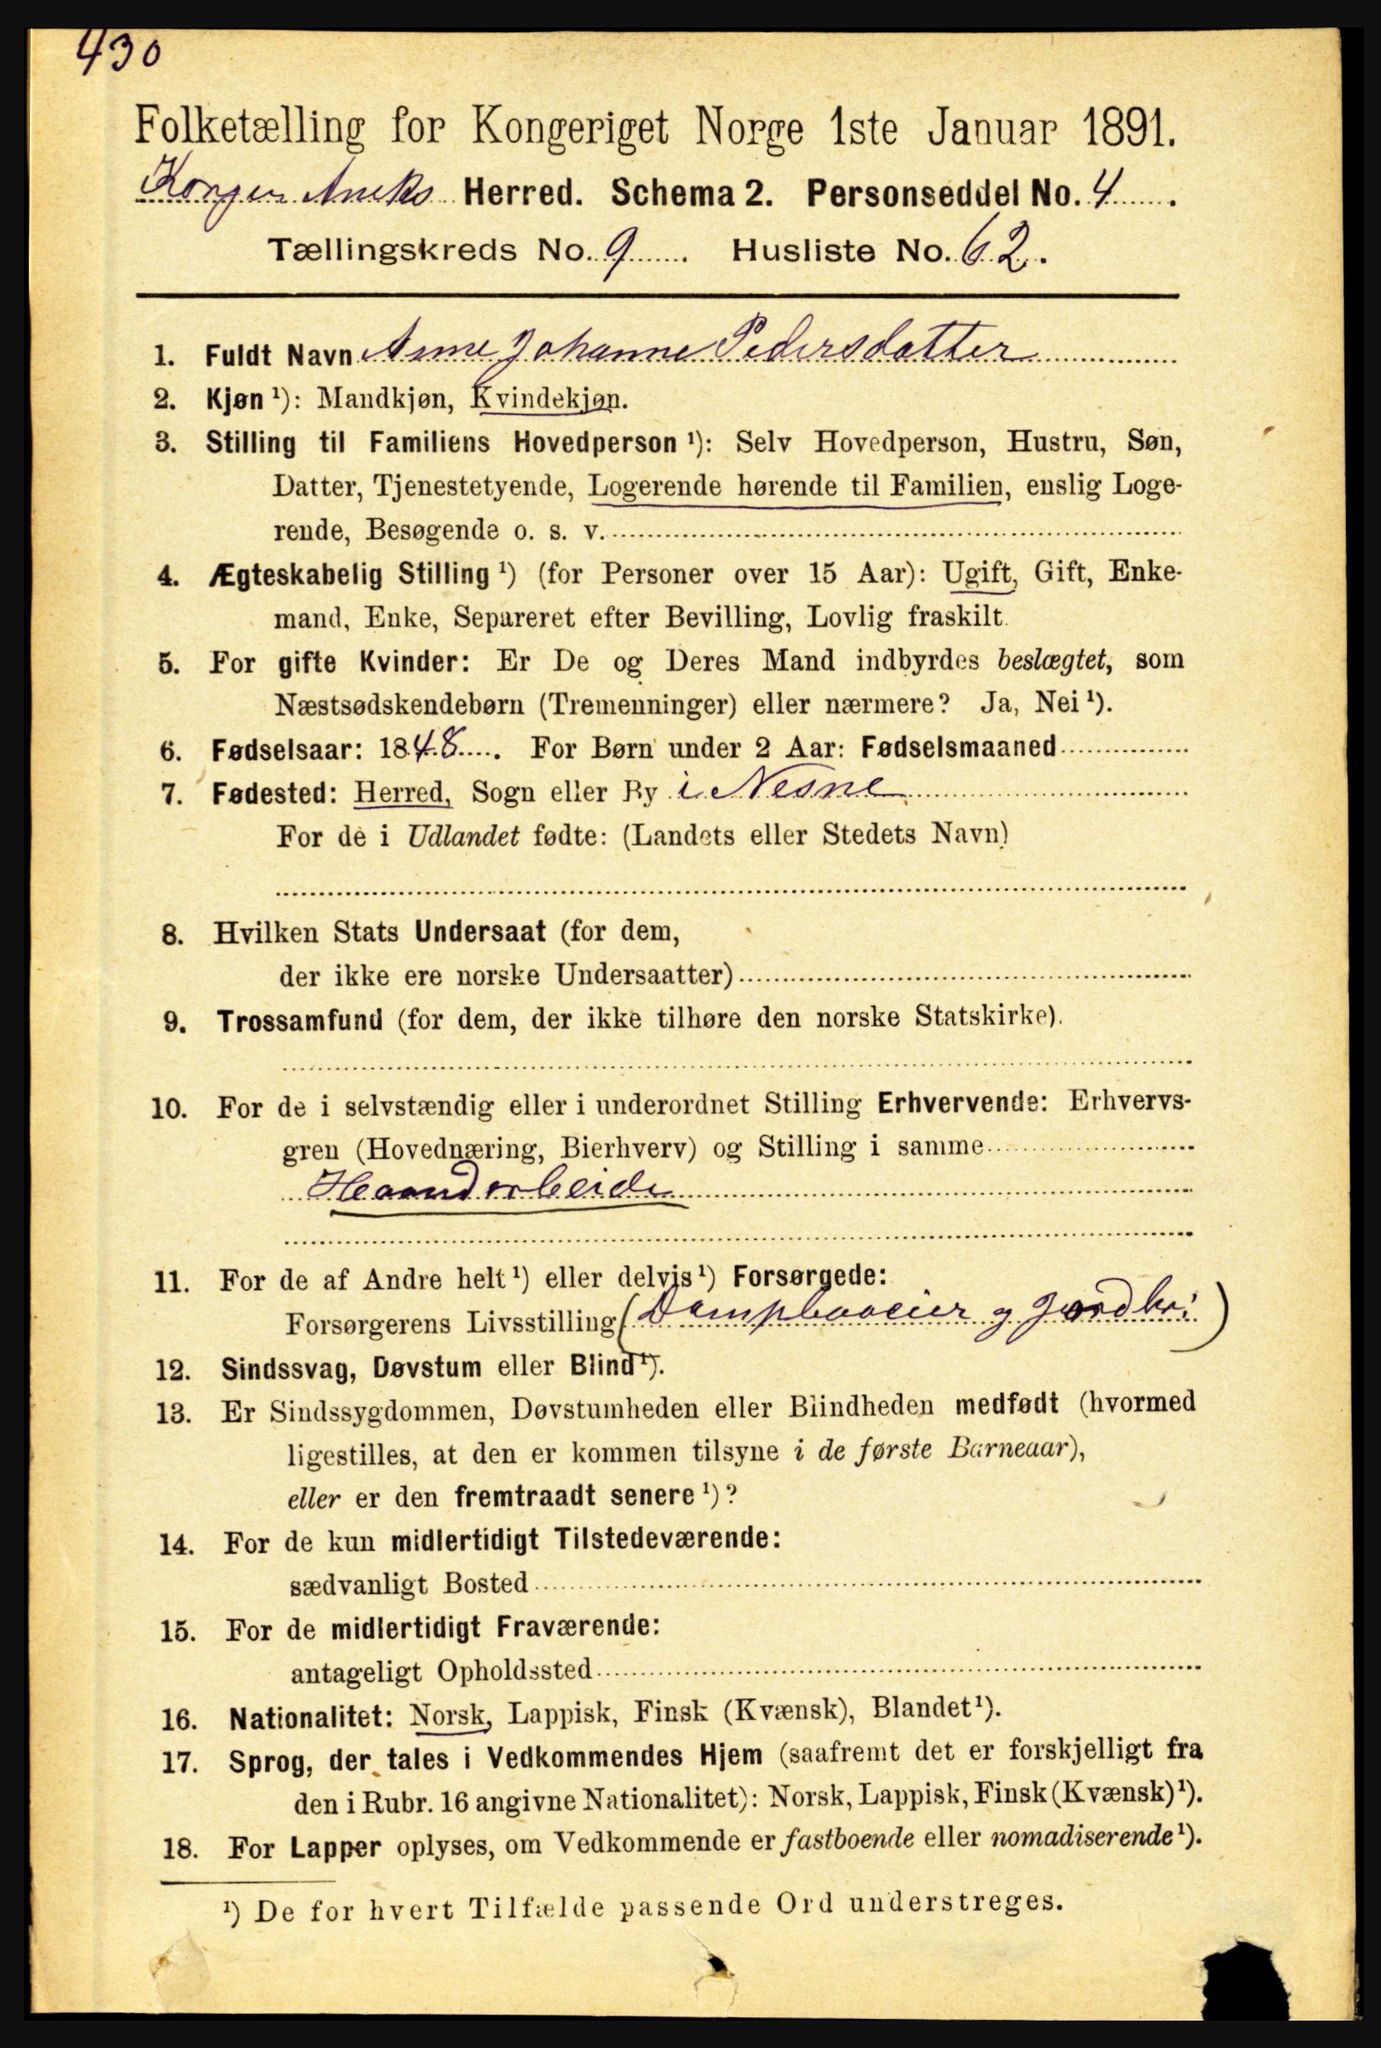 430
Folketælling for Kongeriget Norge 1ste Januar 1891.
Korgen Aneks Herred. Schema 2. Personseddel No. 4.
Tællingskreds No. 9. Husliste No. 62.
1. Fuldt Navn Anne Johanne Pedersdatter
2. Kjøn ¹): Mandkjøn, Kvindekjøn.
3. Stilling til Familiens Hovedperson ¹): Selv Hovedperson, Hustru, Søn,
Datter, Tjenestetyende, Logerende hørende til Familien, enslig Loge-
rende, Besøgende o. s. v.
4. Ægteskabelig Stilling ¹) (for Personer over 15 Aar): Ugift, Gift, Enke-
mand, Enke, Separeret efter Bevilling, Lovlig fraskilt.
5. For gifte Kvinder: Er De og Deres Mand indbyrdes beslægtet, som
Næstsødskendebørn (Tremenninger) eller nærmere? Ja, Nei ¹).
6. Fødselsaar: 1848. For Børn under 2 Aar: Fødselsmaaned
7. Fødested: Herred, Sogn eller By i Nesne
For de i Udlandet fødte: (Landets eller Stedets Navn)
8. Hvilken Stats Undersaat (for dem,
der ikke ere norske Undersaatter)
9. Trossamfund (for dem, der ikke tilhøre den norske Statskirke).
10. For de i selvstændig eller i underordnet Stilling Erhvervende: Erhvervs-
gren (Hovednæring, Bierhverv) og Stilling i samme
Haandarbeide
11. For de af Andre helt ¹) eller delvis ¹) Forsørgede:
Forsørgerens Livsstilling (Dampbaaeier g Jordbr:)
12. Sindssvag, Døvstum eller Blind ¹).
13. Er Sindssygdommen, Døvstumheden eller Blindheden medfødt (hvormed
ligestilles, at den er kommen tilsyne i de første Barneaar),
eller er den fremtraadt senere ¹)?
14. For de kun midlertidigt Tilstedeværende:
sædvanligt Bosted
15. For de midlertidigt Fraværende:
antageligt Opholdssted
16. Nationalitet: Norsk, Lappisk, Finsk (Kvænsk), Blandet ¹).
17. Sprog, der tales i Vedkommendes Hjem (saafremt det er forskjelligt fra
den i Rubr. 16 angivne Nationalitet): Norsk, Lappisk, Finsk (Kvænsk) ¹).
18. For Lapper oplyses, om Vedkommende er fastboende eller nomadiserende ¹).
¹) De for hvert Tilfælde passende Ord understreges.